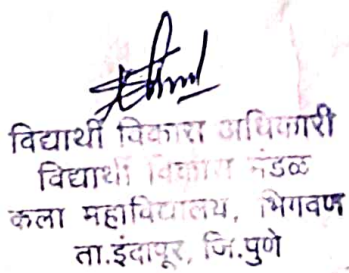 विद्यार्थी विकास अधिकारी
विद्यार्थी विकास मंडळ
कला महाविद्यालय, भिगवण
ता.इंदापूर, जि.पुणे